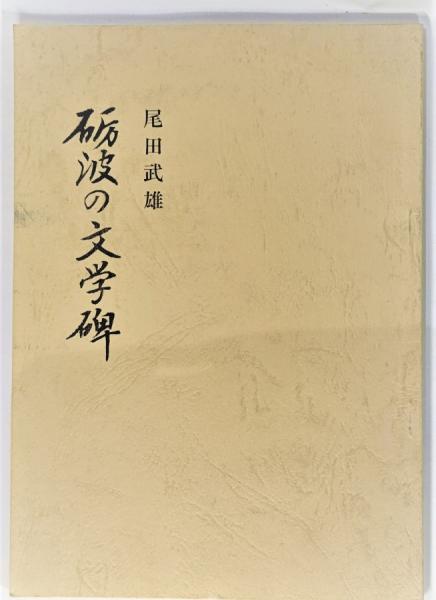 尾田武雄
砺波の文学碑